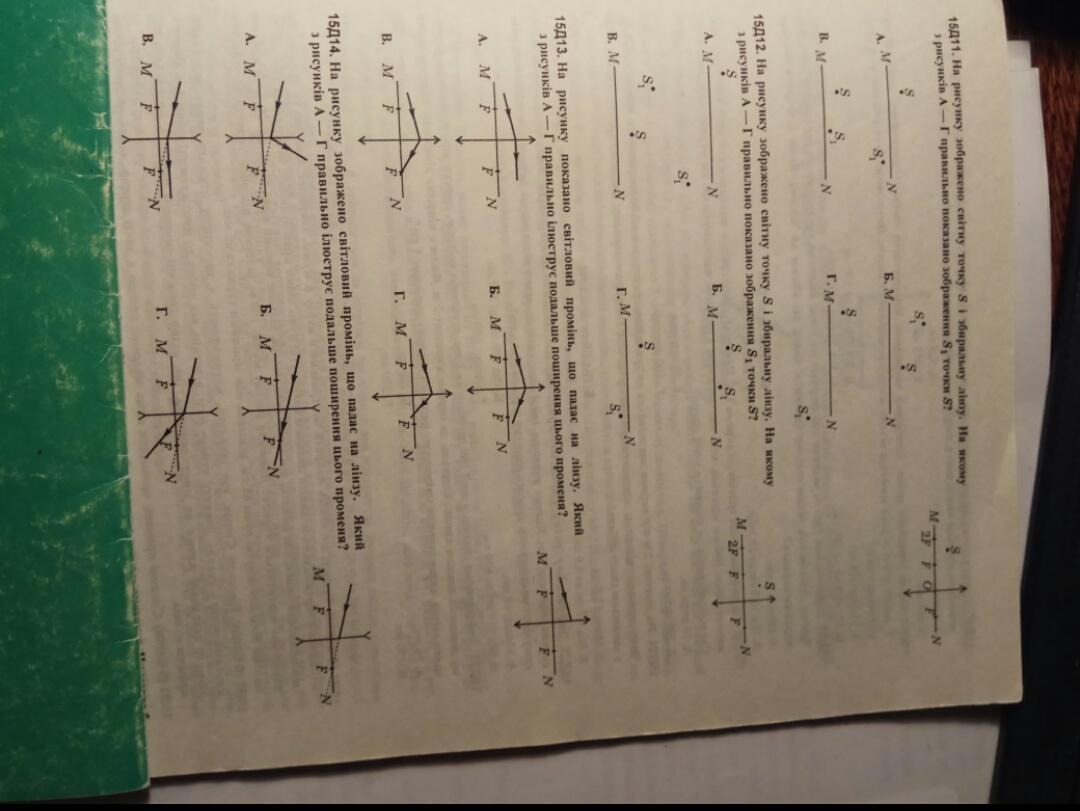 15Д11. На рисунку зображено світну точку S і збиральну лінзу. На якому
з рисунків А — Г правильно показано зображення S₁ точки S?
M 2F F O F N
S
А. M N
S S₁
Б. M N
S₁ S
В. M N
S S₁
Г. M N
S S₁
15Д12. На рисунку зображено світну точку S і збиральну лінзу. На якому
з рисунків А — Г правильно показано зображення S₁ точки S?
M 2F F F N
S
А. M N
S S₁
Б. M N
S S₁
В. M N
S₁ S
Г. M N
S S₁
15Д13. На рисунку показано світловий промінь, що падає на лінзу. Який
з рисунків А — Г правильно ілюструє подальше поширення цього променя?
M F F N
А. M F F N
Б. M F F N
В. M F F N
Г. M F F N
15Д14. На рисунку зображено світловий промінь, що падає на лінзу. Який
з рисунків А — Г правильно ілюструє подальше поширення цього променя?
M F F N
А. M F F N
Б. M F F N
В. M F F N
Г. M F F N